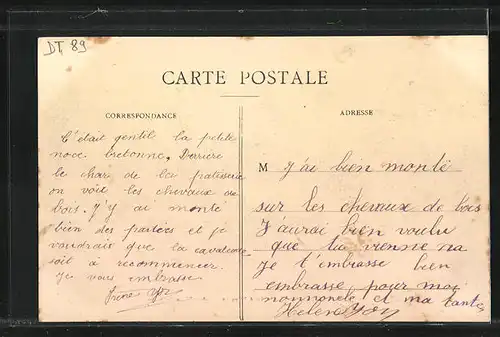 DT 89
CARTE POSTALE
CORRESPONDANCE
C'était gentil la petite
noce bretonne. Derrière
le char de la patisserie
on voit les chevaux de
bois. J'y ai monté
bien des parties et je
voudrais que la cavalcade
soit à recommencer.
Je vous embrasse
ADRESSE
M J'ai bien monté
sur les chevaux de bois
J'aurai bien voulu
que tu vienne
Je t'embrasse bien
embrasse pour moi
et ma tante
Helene